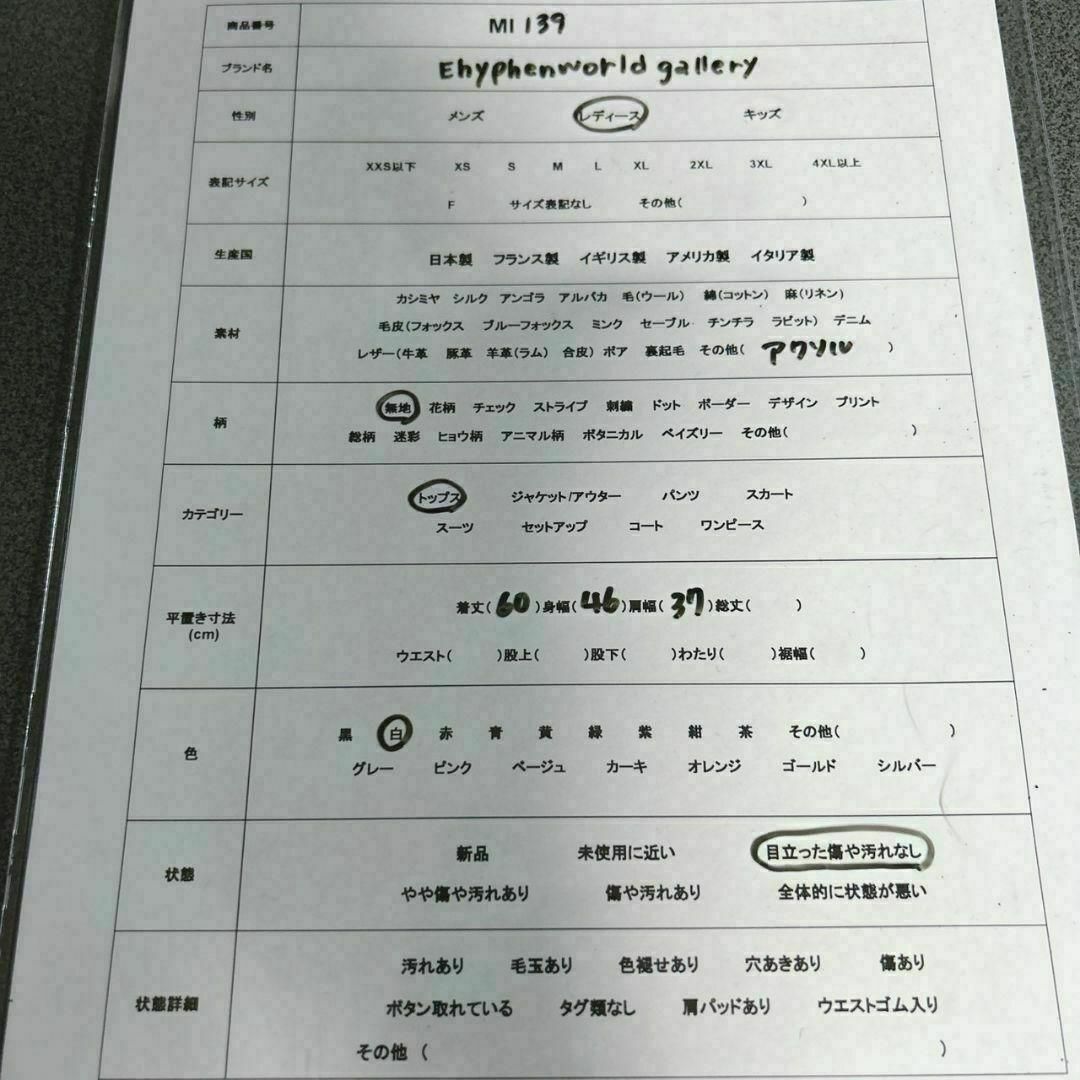 商品番号 MI 139
ブランド名 Ehyphenworld gallery
性別 メンズ レディース キッズ
表記サイズ
XXS以下 XS S M L XL 2XL 3XL 4XL以上
F サイズ表記なし その他( )
生産国 日本製 フランス製 イギリス製 アメリカ製 イタリア製
素材
カシミヤ シルク アンゴラ アルパカ 毛(ウール) 綿(コットン) 麻(リネン)
毛皮(フォックス ブルーフォックス ミンク セーブル チンチラ ラビット) デニム
レザー(牛革 豚革 羊革(ラム) 合皮) ボア 裏起毛 その他( アクリル )
柄
無地 花柄 チェック ストライプ 刺繍 ドット ボーダー デザイン プリント
総柄 迷彩 ヒョウ柄 アニマル柄 ボタニカル ペイズリー その他( )
カテゴリー
トップス ジャケット/アウター パンツ スカート
スーツ セットアップ コート ワンピース
平置き寸法
(cm)
着丈( 60 )身幅( 46 )肩幅( 37 )総丈( )
ウエスト( )股上( )股下( )わたり( )裾幅( )
色
黒 白 赤 青 黄 緑 紫 紺 茶 その他( )
グレー ピンク ベージュ カーキ オレンジ ゴールド シルバー
状態
新品 未使用に近い 目立った傷や汚れなし
やや傷や汚れあり 傷や汚れあり 全体的に状態が悪い
状態詳細
汚れあり 毛玉あり 色褪せあり 穴あきあり 傷あり
ボタン取れている タグ類なし 肩パッドあり ウエストゴム入り
その他 ( )